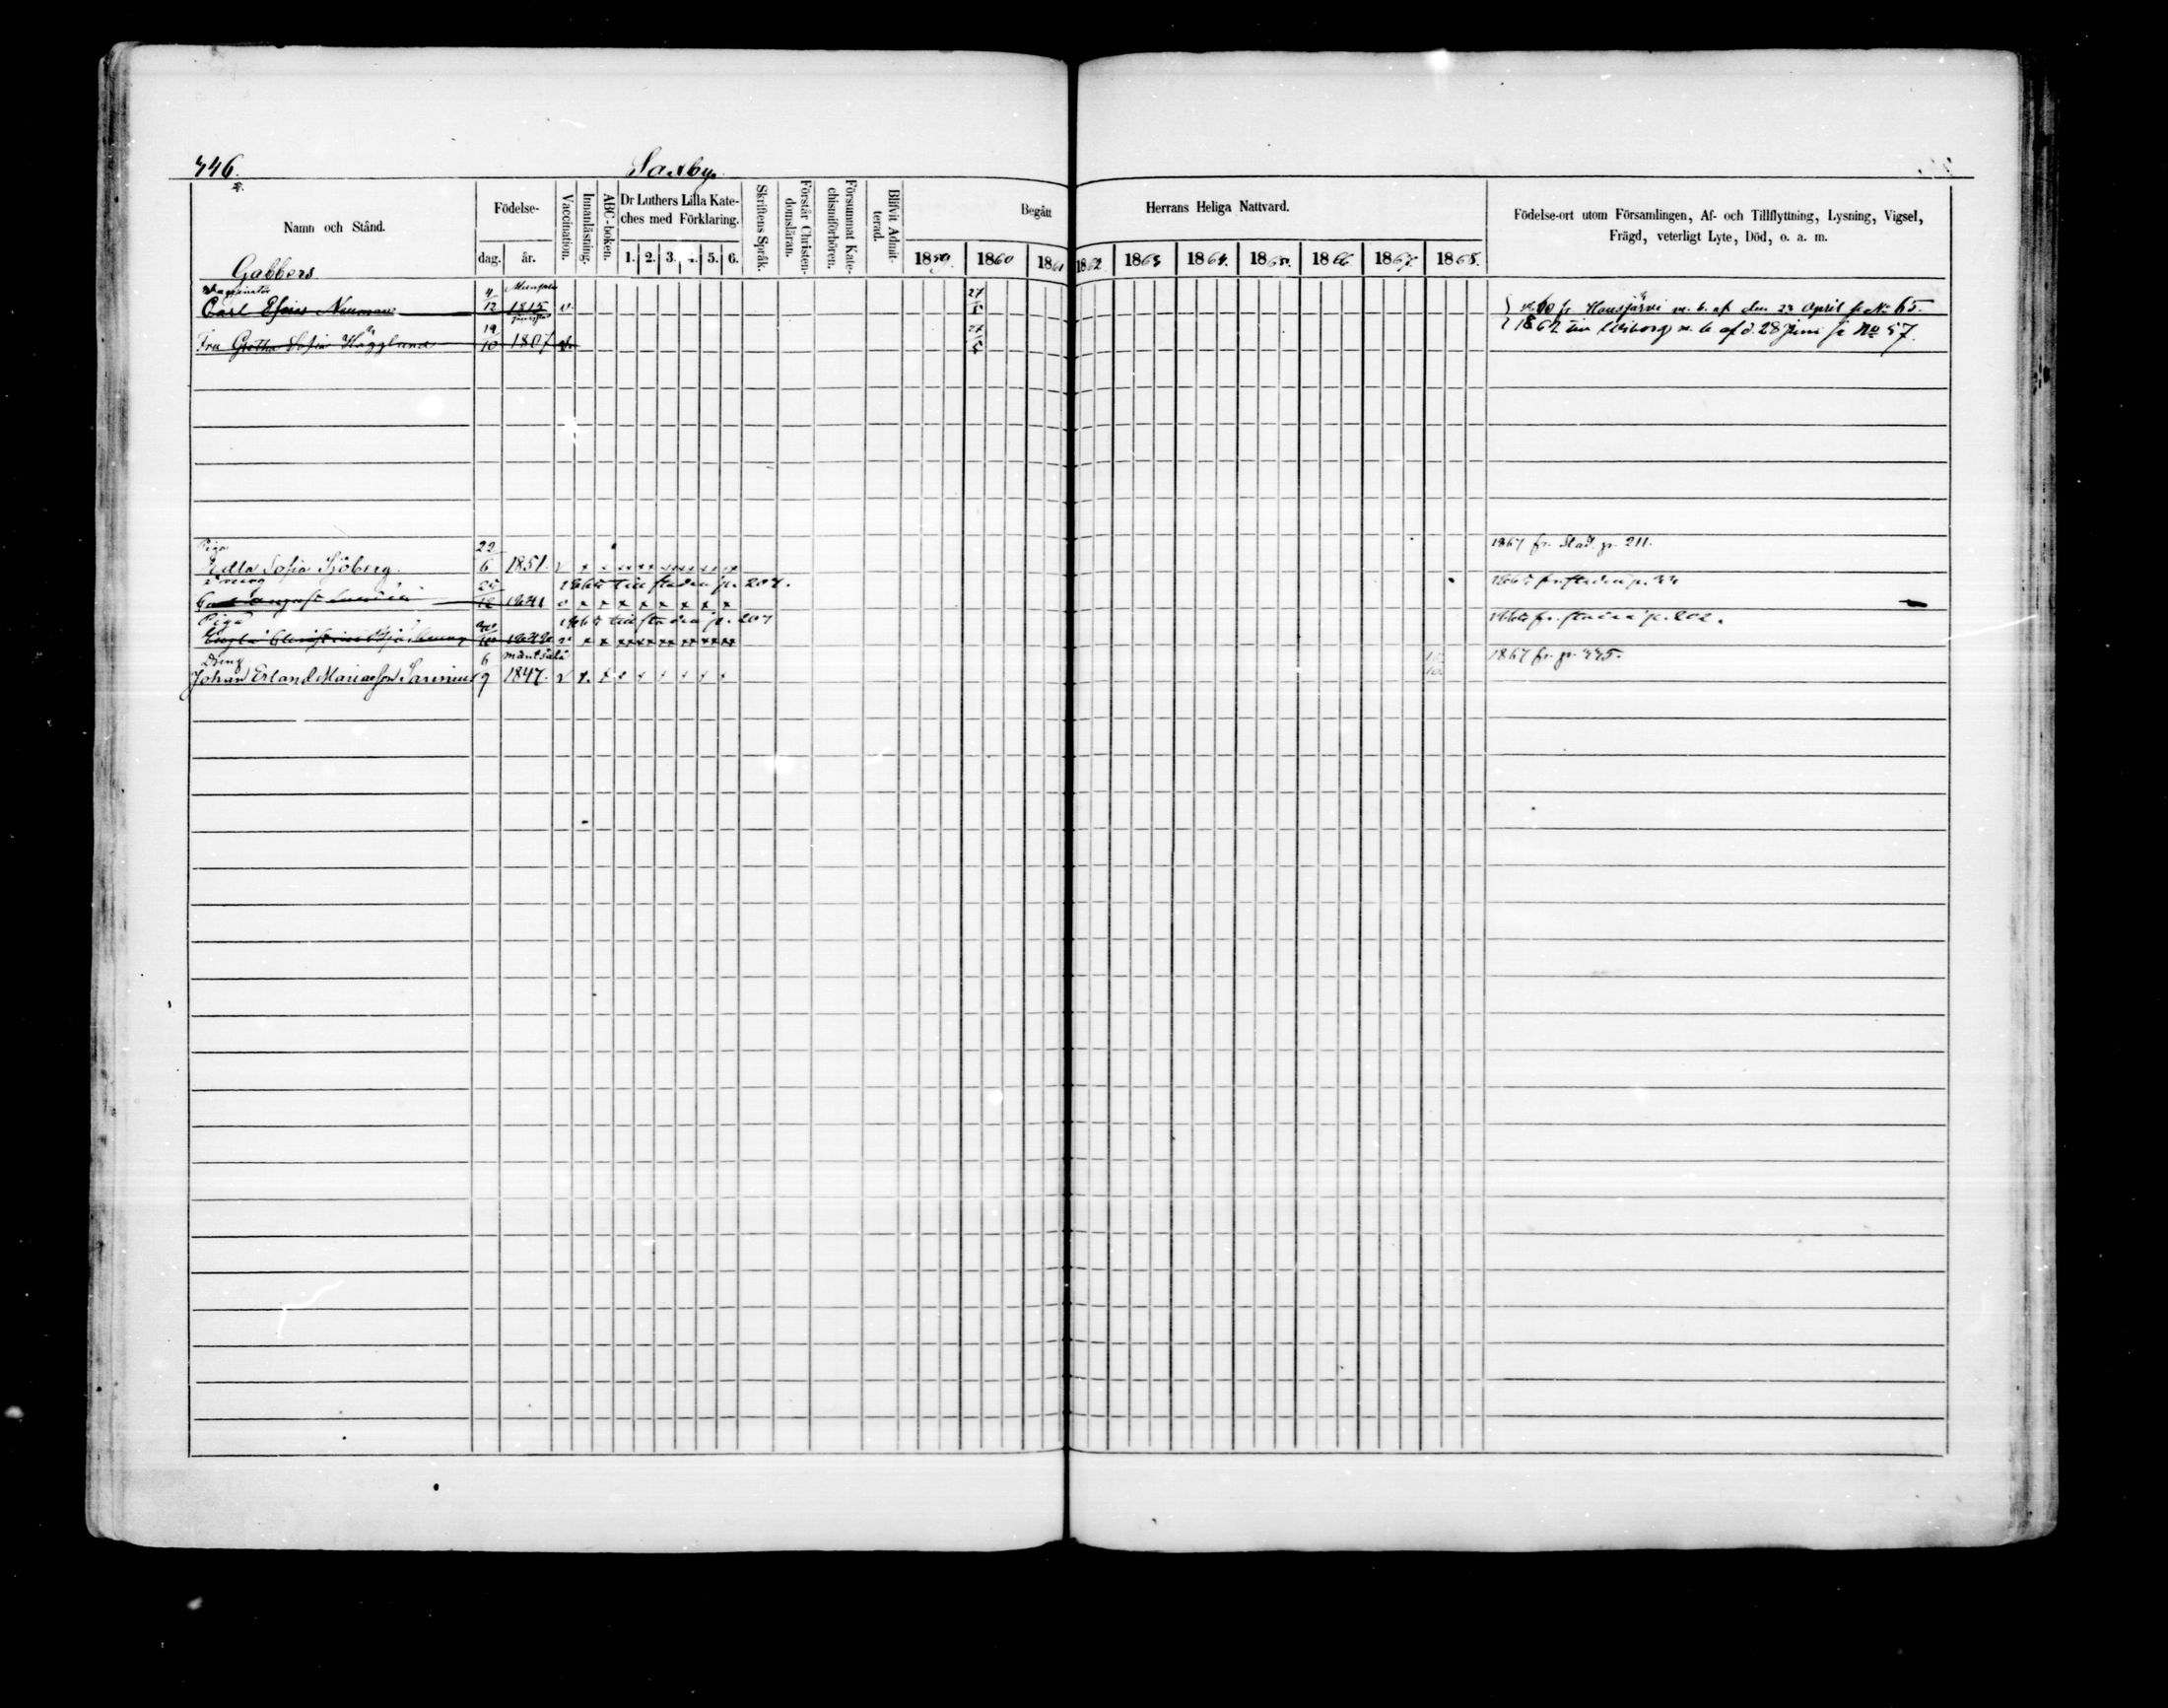 446.
Saxby.
Namn och Stånd.
Födelse-
dag. år.
Vaccination.
Innanläsning.
ABC-boken.
Dr Luthers Lilla Kate-
ches med Förklaring.
1. 2. 3. 4. 5. 6.
Skriftens Språk.
Förstår Christen-
domsläran.
Försummat Kate-
chismiförhören.
Blifvit Admit-
terad.
Begått Herrans Heliga Nattvard.
1859. 1860 1861 1862. 1863 1864. 1865. 1866. 1867. 1868.
Födelse-ort utom Församlingen, Af- och Tillflyttning, Lysning, Vigsel,
Frägd, veterligt Lyte, Död, o. a. m.
Gabbers
Carl Neuman 4/12 1815 v. 27/5 60 fr Hausjärvi m. b. af den 23 April sr No 65.
Fru Gretha Sofia Hägglund 19/10 1807 v. 27/5 1862 till Wiborg m. b. af d. 28 Juni sr No 57.
Piga
Edla Sofia Sjöberg. 22/6 1851. v x x x x x x x x 1867 fr. stad. p. 211.
Dreng 25/12 1841 till staden p. 207. fr. staden p.
Carl August
Piga till staden p. 207 fr. staden p. 202.
Dreng Mäntsälä
Johan Erland Mariasson Sarenius 6/9 1847. v x. x x x x x x x 1867 fr. p. 445.